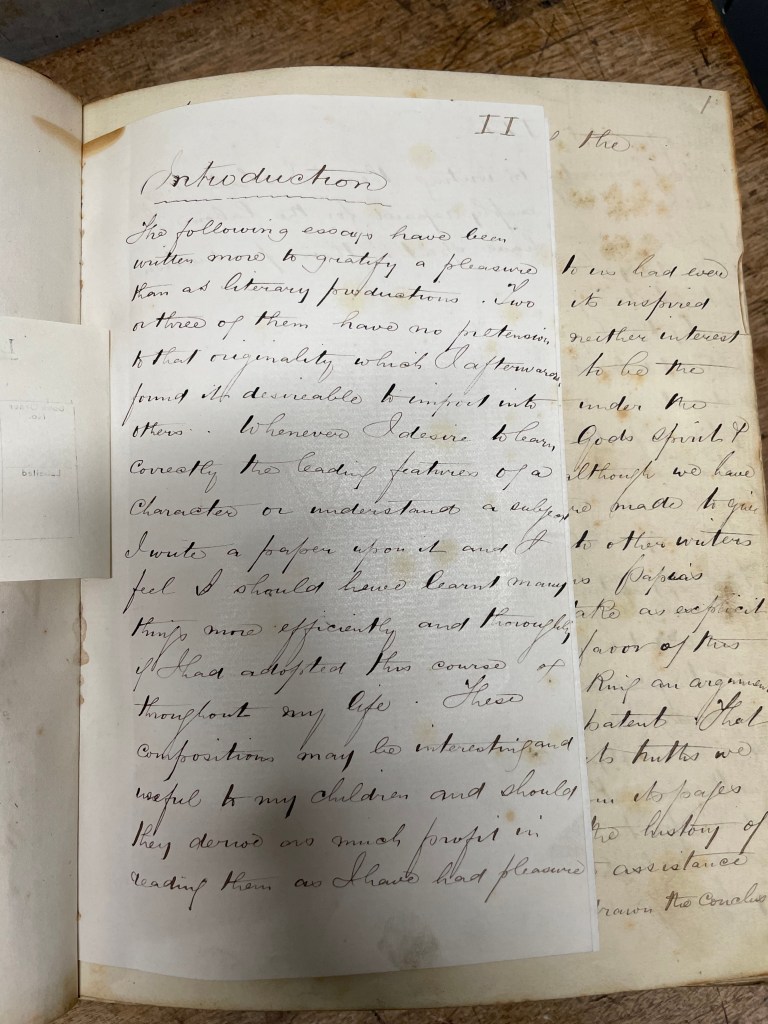 II
Introduction
The following essays have been
written more to gratify a pleasure
than as literary productions. Two
or three of them have no pretension
to that originality which I afterwards
found it desireable to import into
others. Whenever I desire to learn
correctly the leading features of a
character or understand a subject
I write a paper upon it and I
feel I should have learnt many
things more efficiently and thoroughly
if I had adopted this course of
throughout my life. These
compositions may be interesting and
useful to my children and should
they derive as much profit in
reading them as I have had pleasure
1
the
to us had ever
its inspired
neither interest
to be the
under the
Gods spirit &
although we have
made to give
to other writers
Papias
take as explicit
favor of this
King an argument
patent. That
its truths we
its pages
the history of
assistance
drawn the Conclus
I